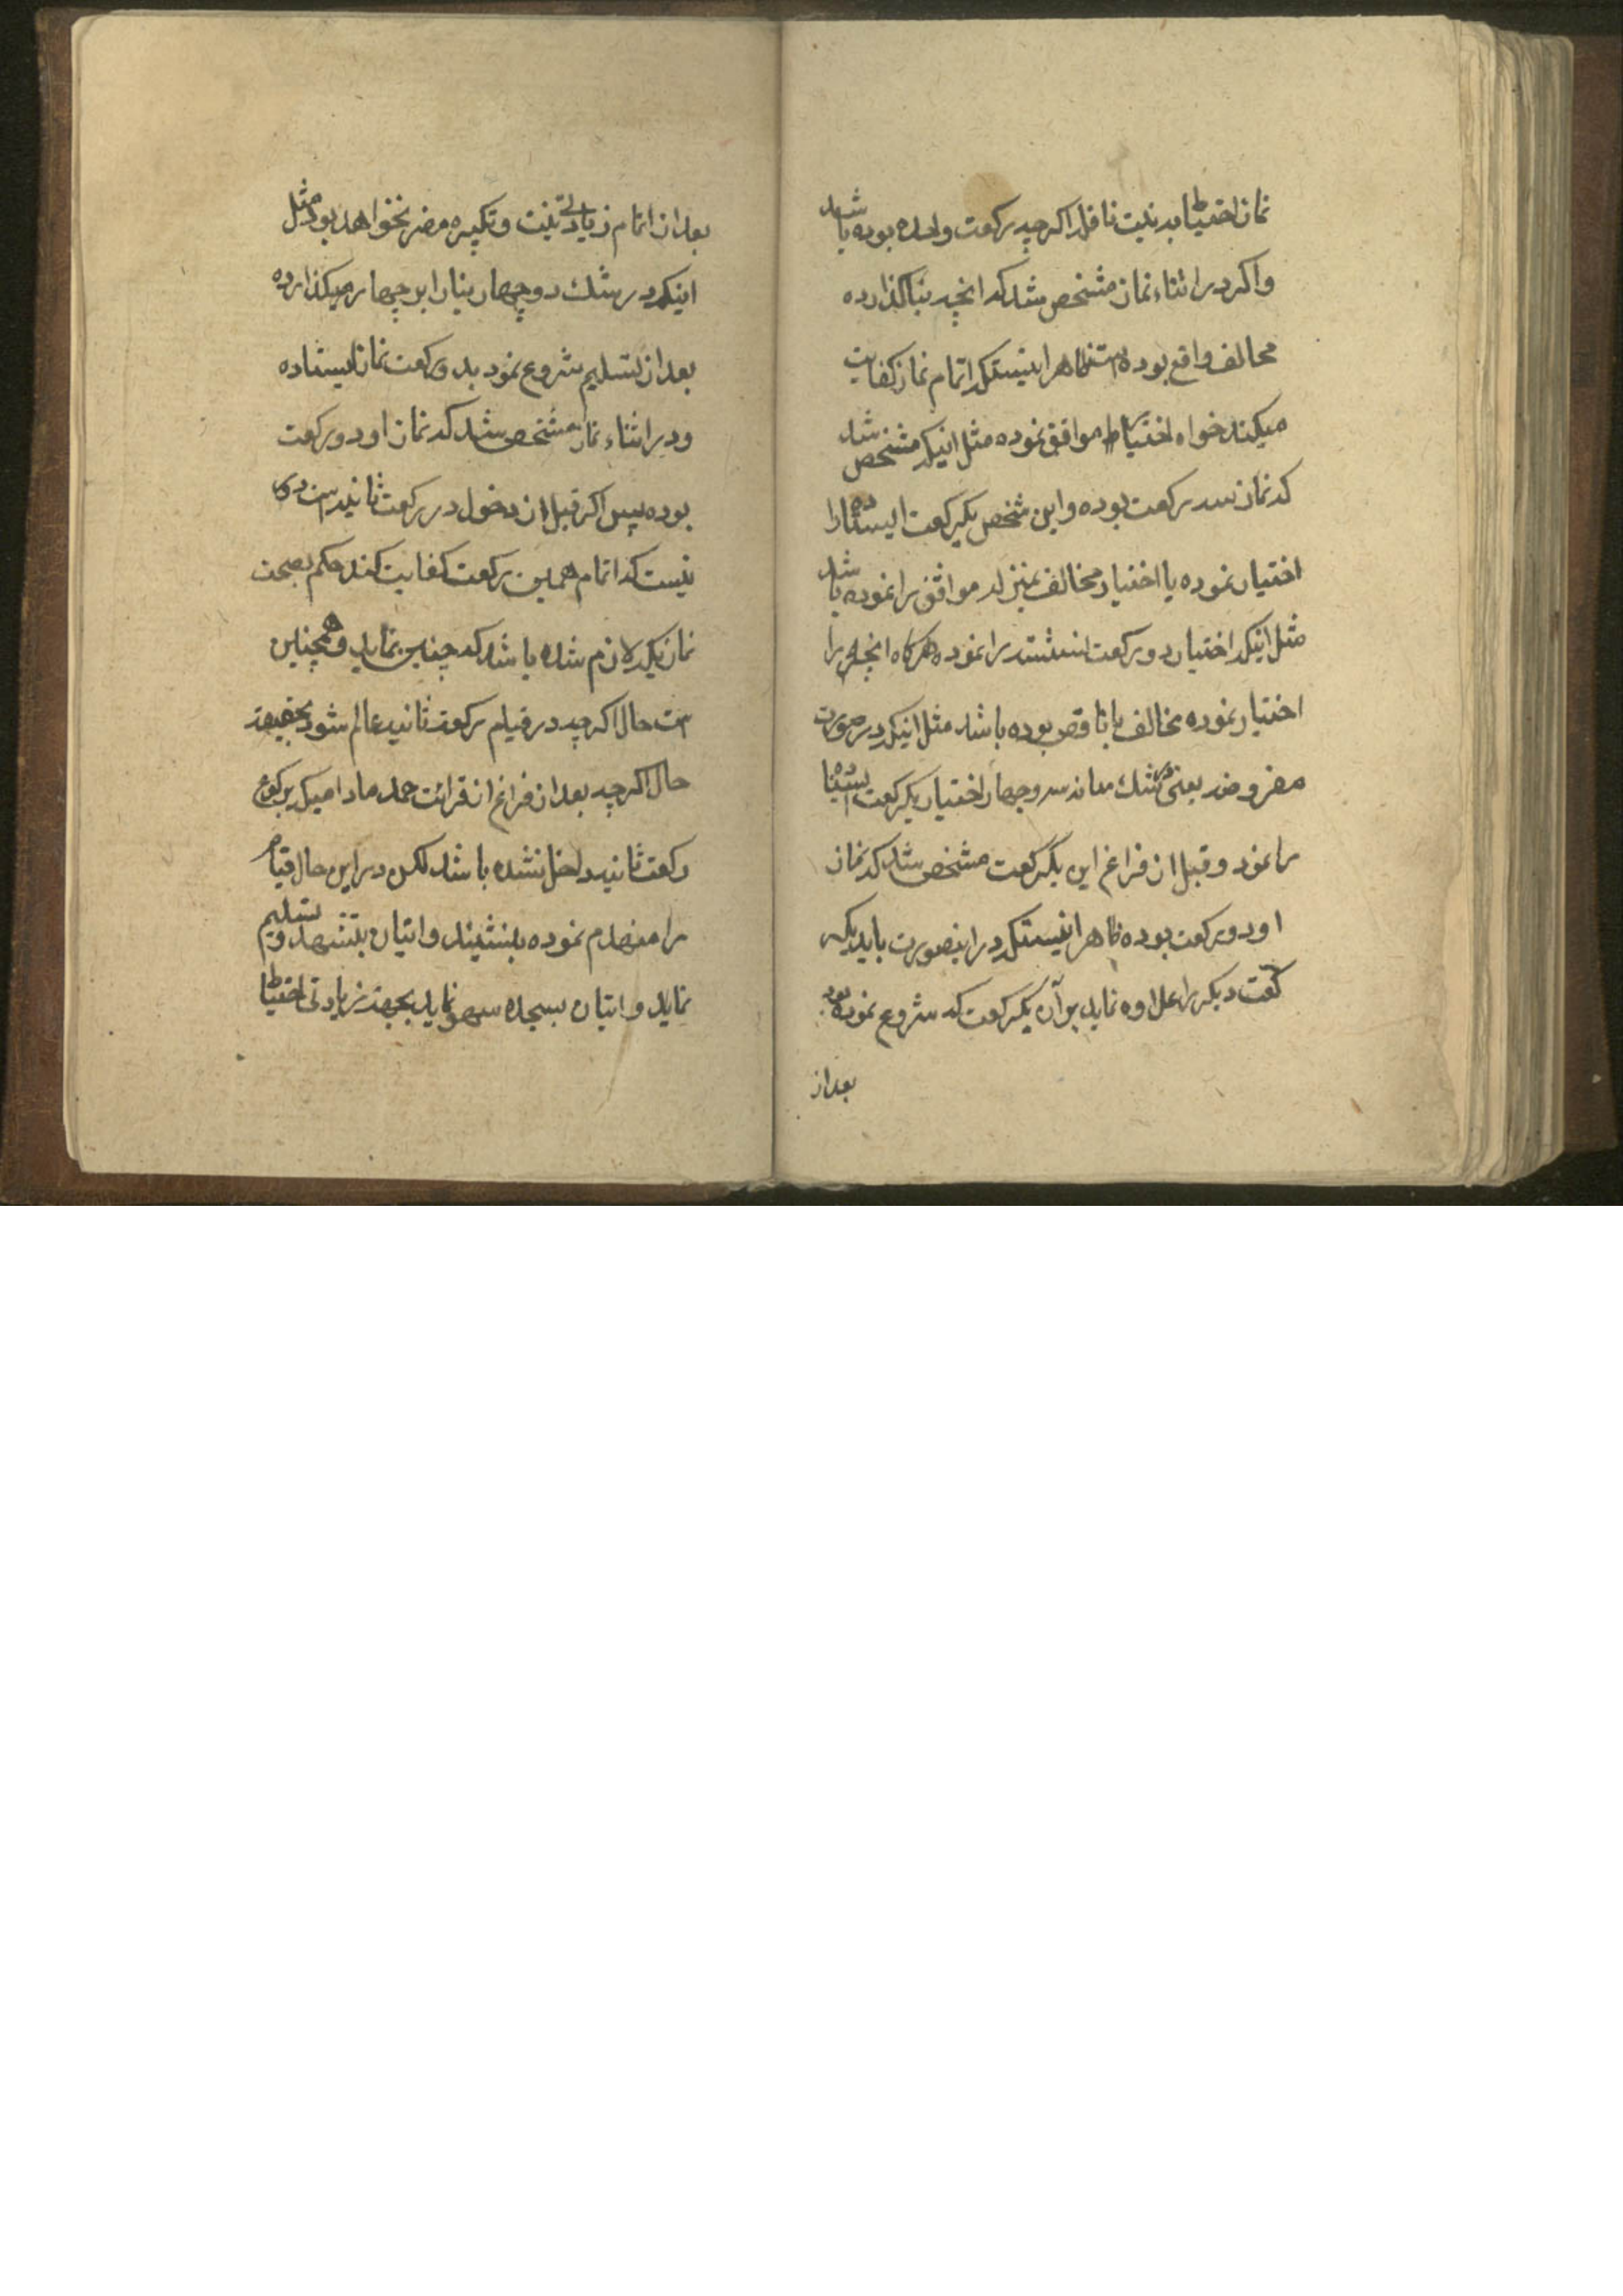 نماز احتیاط به نیت نافله اگرچه رکعت واحده بوده باشد
و اگر در اثناء نماز مشخص شد که آنچه بنا گذارده
مخالف واقع بوده است ظاهر اینستکه اتمام نماز کفایت
میکند خواه احتیاط موافق نموده مثل اینکه مشخص شد
که نماز سه رکعت بوده و این شخص یکرکعت ایستاده را
اختیار نموده یا اختیار مخالف بمنزله موافق را نموده باشد
مثل اینکه اختیار دو رکعت نشسته را نموده و هرگاه آنچه را
اختیار نموده مخالف یا ناقص بوده باشد مثل اینکه در صورت
مفروضه یعنی در شک میانه سه و چهار اختیار یکرکعت ایستاده
را نمود و قبل از فراغ این یکرکعت مشخص شد که نماز
او دو رکعت بوده ظاهر اینستکه در اینصورت باید یکر
کعت دیگر را علاوه نماید بر آن یکرکعت که شروع نموده بود
بعد از
بعد از اتمام زیادتی نیت و تکبیره مضر نخواهد بود مثل
اینکه در شک دو چهار بنا را بر چهار میگذارده
بعد از تسلیم شروع نمود بدو رکعت نماز ایستاده
و در اثناء نماز مشخص شد که نماز او دو رکعت
بوده پس اگر قبل از دخول در رکعت ثانیه است دور
نیست که اتمام همین رکعت کفایت کند حکم بصحت
نماز یکه لازم شده باشد که چنین نماید و همچنین
است حال اگرچه در قیام رکعت ثانیه عالم شود بحقیقت
حال اگرچه بعد از فراغ از قرائت حمد مادامیکه برکوع
رکعت ثانیه داخل نشده باشد لکن در این حال قیام
را منهدم نموده بنشیند و اتیان بتشهد و تسلیم
نماید و اتیان بسجده سهو نماید بجهت زیادتی احتیاط